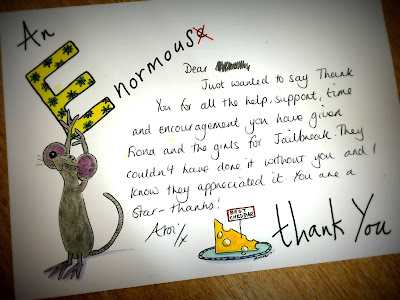 An
Enormous
Dear
Just wanted to say Thank
You for all the help, support, time
and encouragement you have given
Fiona and the girls for Jailbreak. They
couldn't have done it without you and I
know they appreciated it. You are a
Star - thanks!
BEST
CHEDDAR
thank You